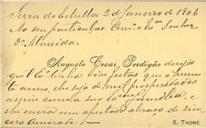 Serra da Estrella 2 de Janeiro de 1906
Ao seu particular Am.º Ex.mo Senhor
Dr. Almeida.
Augusto Cesar Perdigão deseja
que lá tenha boas festas que o
anno, que seja de mil prosperidades
assim como sua Ex.ma familia e
lhe envia um apertado abraço de sincera
amizade
S. THOMÉ